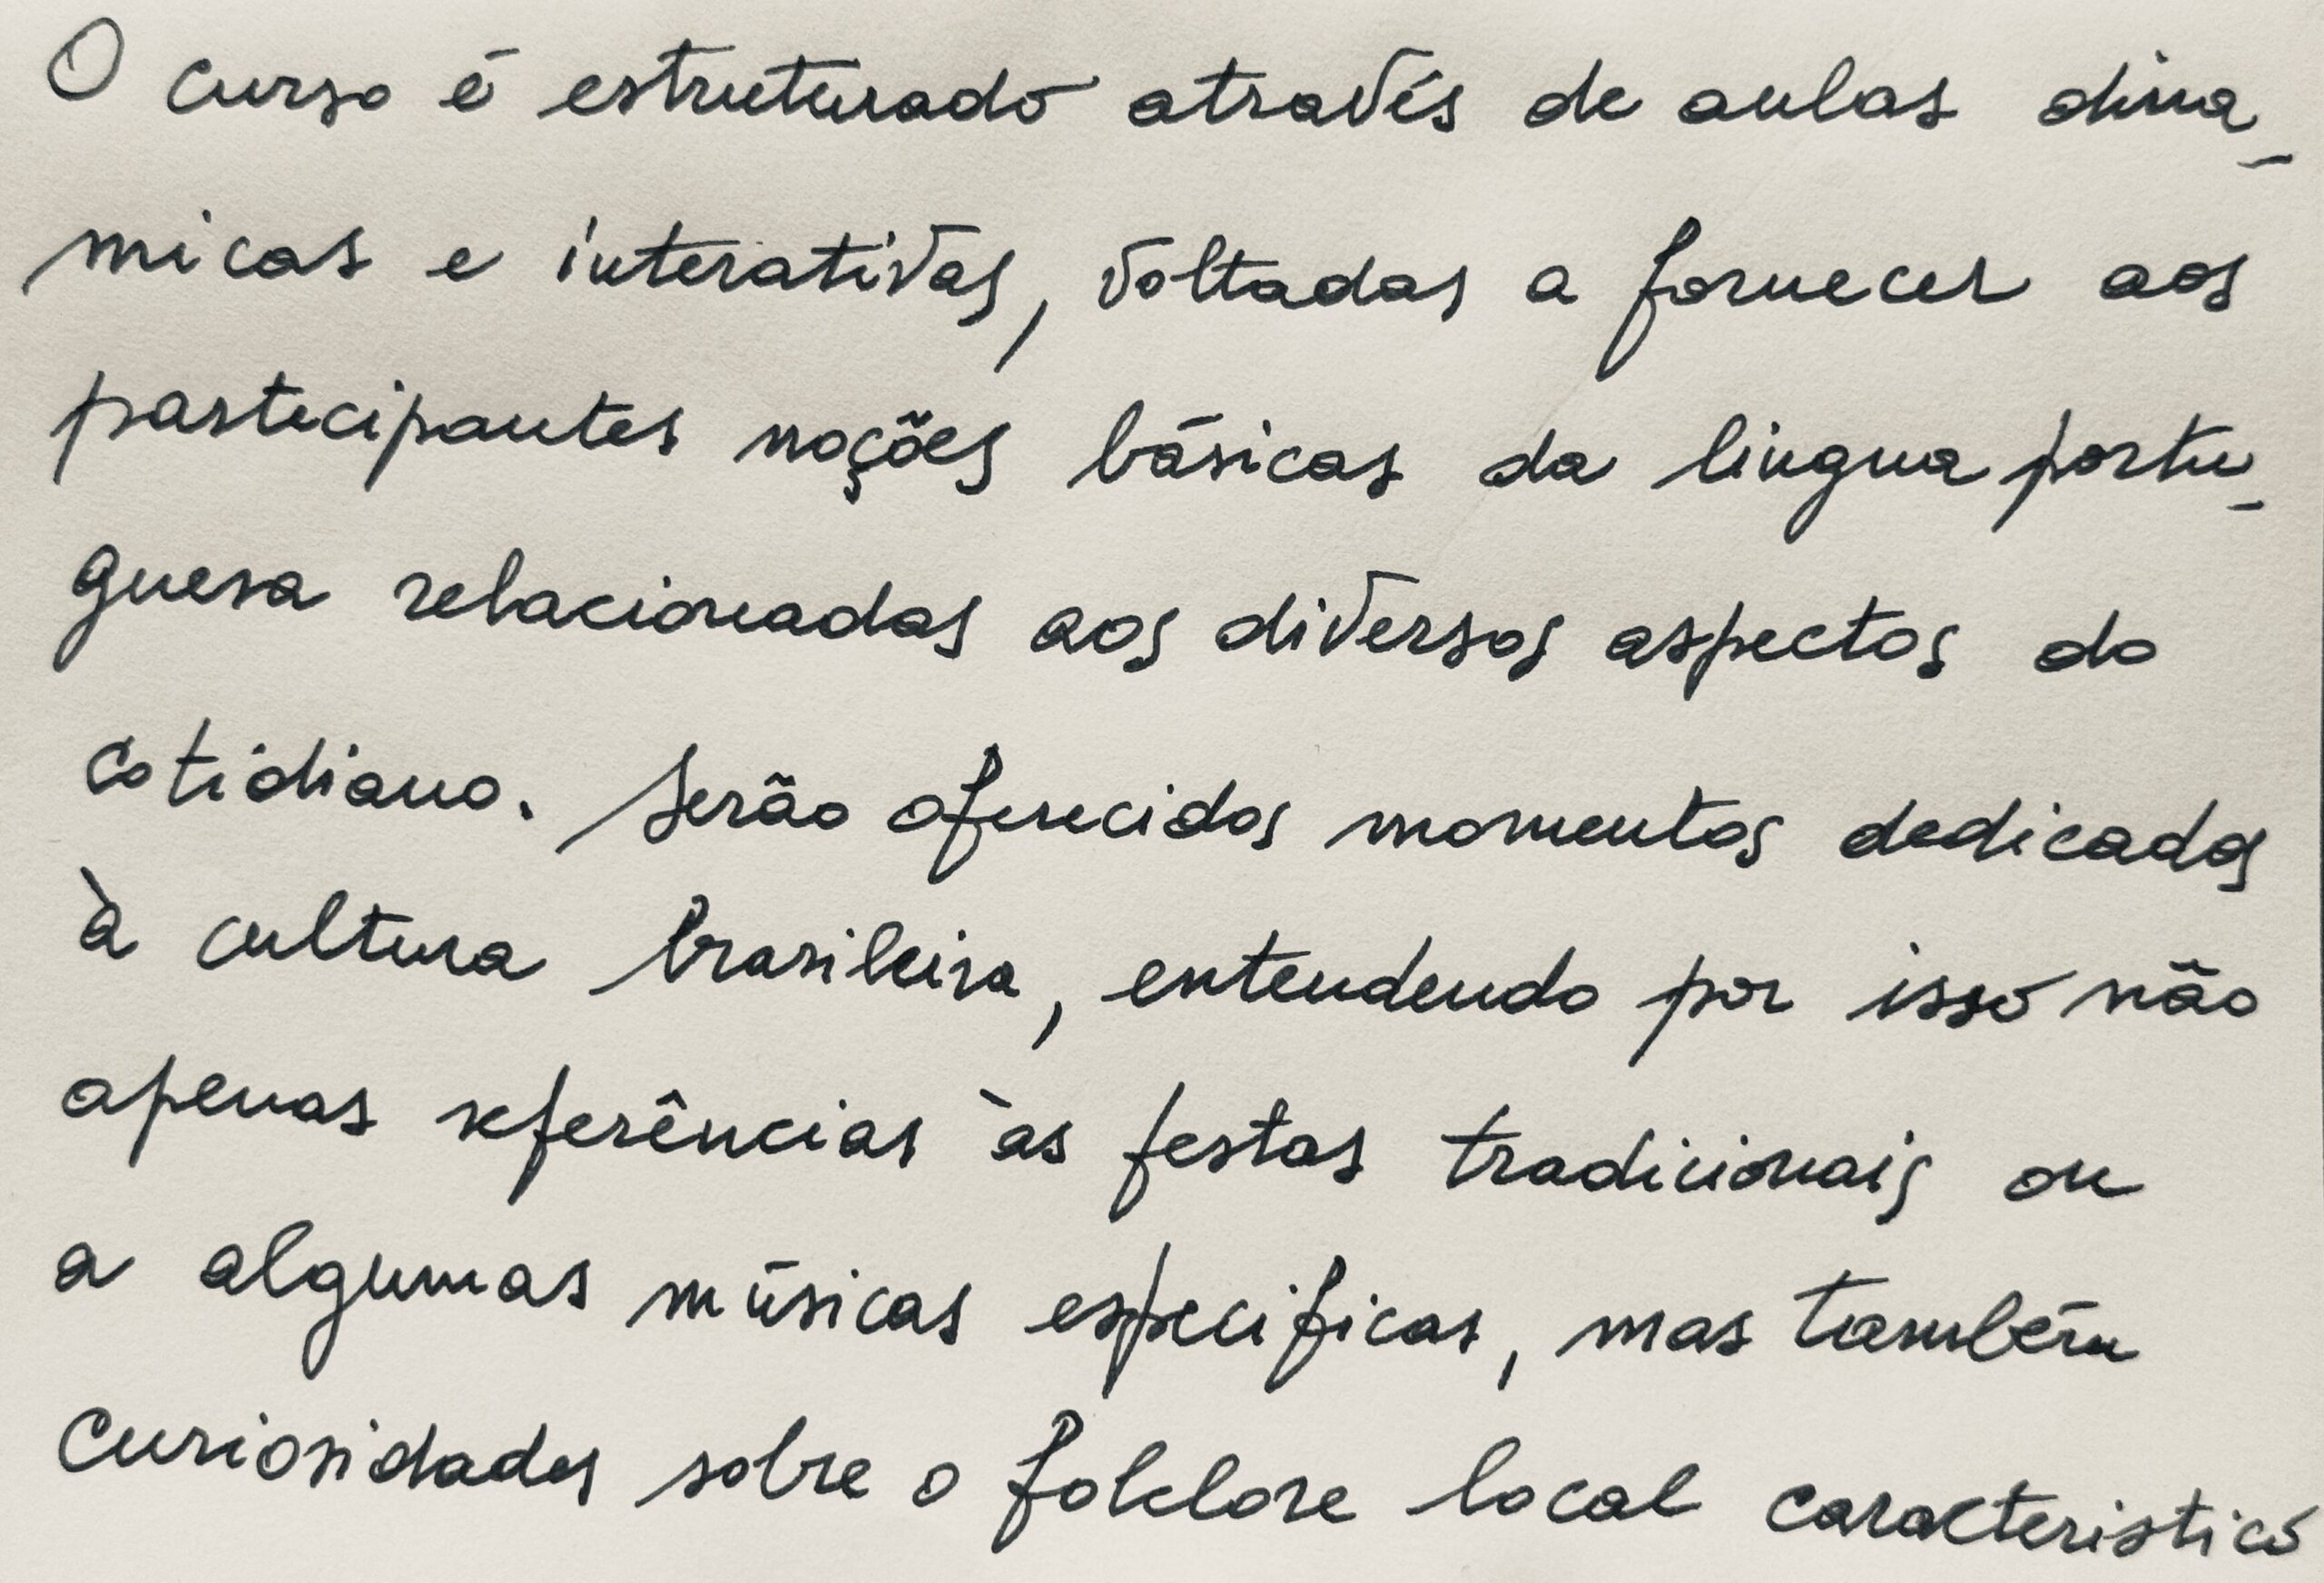 O curso é estruturado através de aulas dina-
micas e interativas, voltadas a fornecer aos
partecipantes noções básicas da lingua portu-
guesa relacionadas aos diversos aspectos do
cotidiano. Serão oferecidos momentos dedicados
à cultura brasileira, entendendo por isso não
apenas referências às festas tradicionais ou
a algumas músicas especificas, mas também
curiosidades sobre o folclore local caracteristico